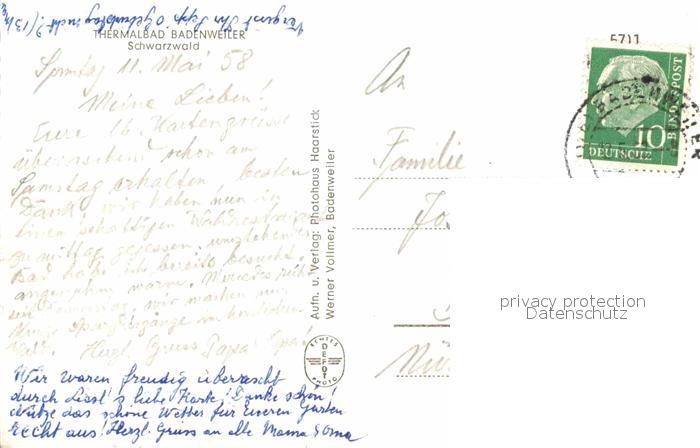 Vergesst Ihr Sepp's Geburtstag nicht? (13.
THERMALBAD BADENWEILER
Schwarzwald
Sonntag 11. Mai 58
Meine Lieben!
Eure lb. Kartengrüsse
überraschend schon am
Samstag erhalten, besten
Dank! wir haben nun in
einem schattigen
zu mittag gegessen,
Bad habe ich bereits besucht.
angenehm warm.
wir machen nur
kleine Spaziergänge im herrlichen
Wald. Herzl. Gruss Papa Opa!
Wir waren freudig überrascht
durch Liesl's liebe Karte! Danke schön!
Nütze das schöne Wetter für Eueren Garten
recht aus! Herzl. Gruss an alle Mama Oma
Aufn. u. Verlag: Photohaus Haarstick
Werner Vollmer, Badenweiler
ECHTES
DEFOT
PHOTO
An
Familie
Jo
Nü
5711
BADENWEILER
10
DEUTSCHE
BUNDESPOST
privacy protection
Datenschutz